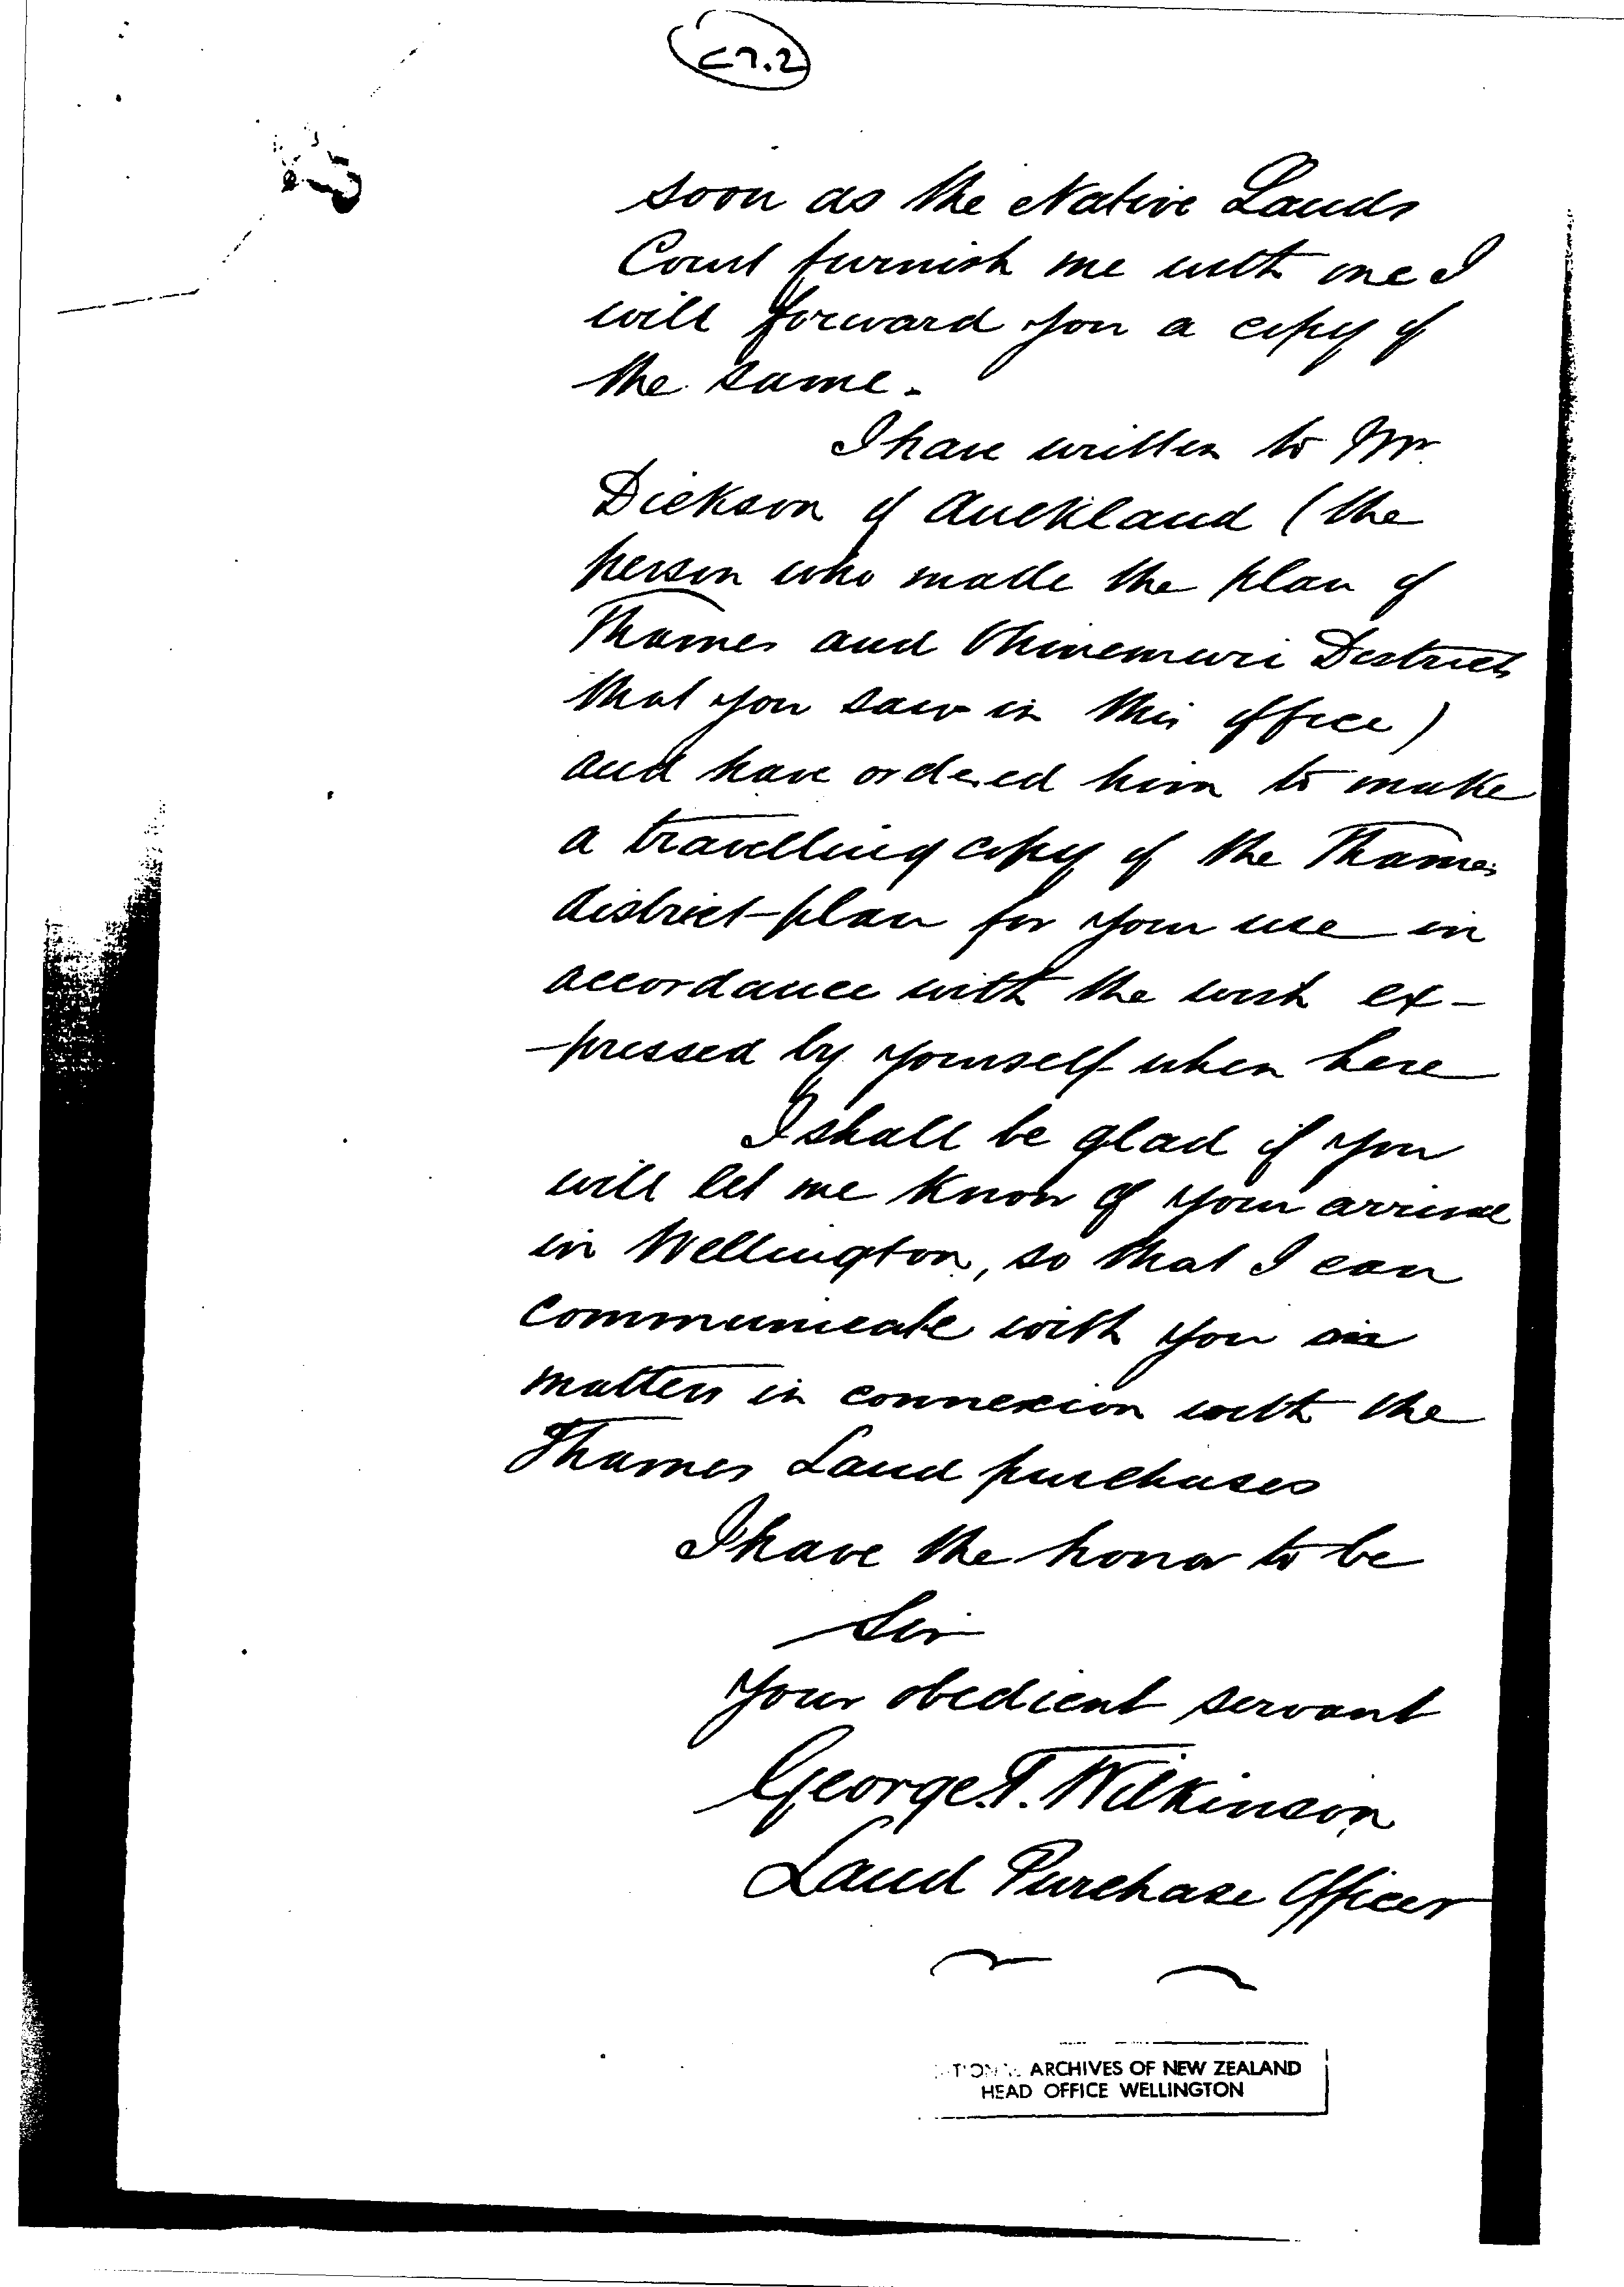 C7.2
soon as the Native Lands
Court furnish me with one I
will forward you a copy of
the same.
I have written to Mr
Dickson of Auckland (the
person who made the plan of
Thames and Ohinemuri Districts
that you saw in this office)
and have ordered him to make
a travelling copy of the Thames
district plan for your use in
accordance with the wish ex-
-pressed by yourself when here
I shall be glad if you
will let me know of your arrival
in Wellington, so that I can
communicate with you in
matters in connexion with the
Thames Land purchases
I have the honor to be
Sir
Your obedient servant
George T. Wilkinson
Land Purchase Officer
ARCHIVES OF NEW ZEALAND
HEAD OFFICE WELLINGTON